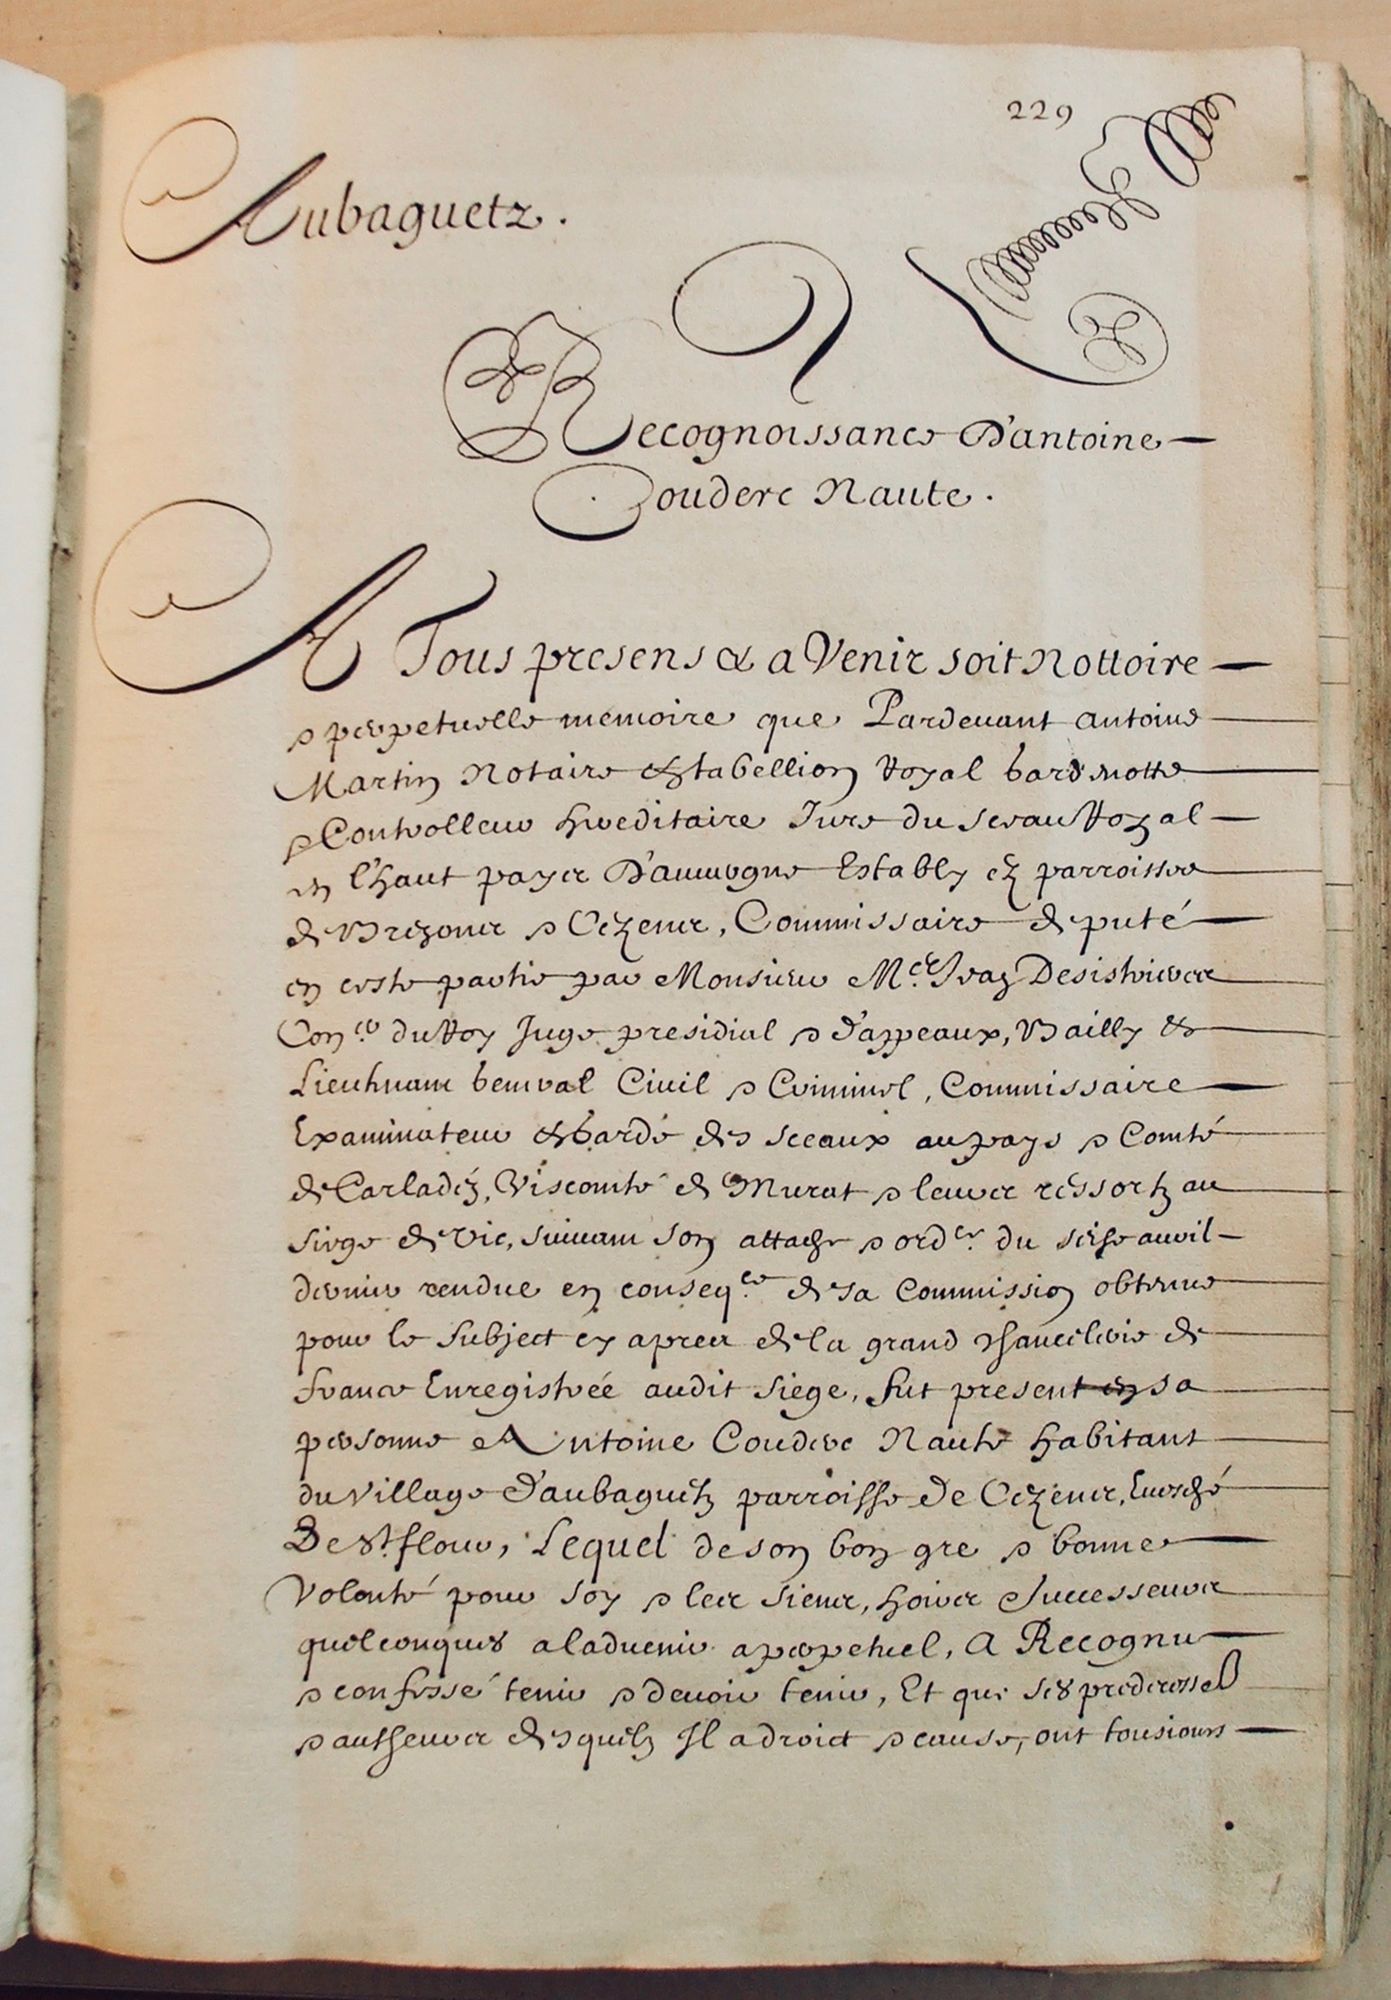 229
Aubaguetz.
Recognoissance D'antoine
Couderc Naute.
A Tous presens & a Venir soit Nottoire
& perpetuelle memoire que Pardevant Antoine
Martin Notaire & tabellion Royal gardenotte
& Controlleur hereditaire Juré du sceau Royal
en l'haut payer D'auuergne Estably ez parroisses
de Brezons & Cezens, Commissaire deputé
en ceste partie par Monsieur Me. Jean Desistrieres
Coner. du Roy Juge presidial & d'appeaux, Bailly &
Lieutenant general Ciuil & Criminel, Commissaire
Examinateur & garde des sceaux au pays & Comté
de Carladéz, Viscomté de Murat & leurs ressortz au
siege de Vic, suiuant son attache & ordce. du seise auril
dernier rendue en conseqce. de sa Commission obtenue
pour le subject cy apres de la grand chancelerie de
france Enregistrée audit siege, fut present en sa
personne Antoine Couderc Naute habitant
du village d'aubaguetz parroisse de Cezens, Euesché
De St. flour, Lequel de son bon gre & bonne
Volonté pour soy & les siens, hoirs successeurs
quelconques a laduenir a perpetuel, A Recognu
& confessé tenir & deuoir tenir, Et que ses predecess
& autheurs desquelz Il a droict & cause, ont tousiours